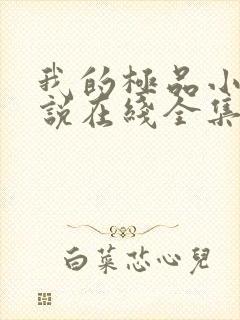 我的極品小
說在綫全集
白菜芯心兒